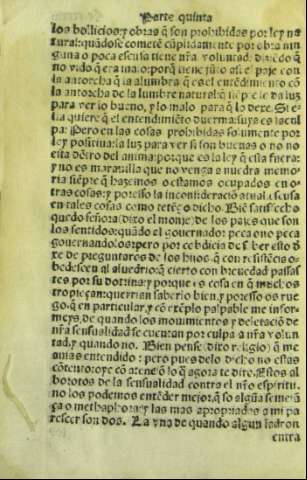 Parte quinta
los bollicios: y obras q̃ son prohibidas por ley na
tural: quãdo se cometẽ cũplidamente por obra nin
guna o poca escusa tiene nr̃a voluntad: diziẽdo q̃
no vido q̃ era malo: porq̃ tiene jũto assi el paje con
la antorcha q̃ la alumbra q̃ es el entẽdimiento cõ
la antorcha de la lumbre natural q̃ siẽpre le da luz
para ver lo bueno, y lo malo para q̃ la dexe. Si e
lla quiere q̃ el entendimiẽto duerma: suya es la cul
pa: Pero en las cosas prohibidas solamente por
ley positiua: la luz para ver si son buenas o no no
esta dẽtro del anima: porque es la ley q̃ esta fuera:
y no es marauilla que no venga a nuestra memo
ria siẽpre q̃ hazemos o estamos ocupados en o
tras cosas: y por esso la inconsideraciõ actual escusa
en tales cosas como tẽgo dicho. Biẽ satisfecho
quedo señora (dixo el monje) de los pajes que son
los sentidos: quãdo el gouernador: peca o no peca
gouernandolos: pero por cobdicia de saber esto õ
xe de preguntaros de los hijos. q̃ con resistẽcia o-
bedescen al aluedrio: q̃ cierto con breuedad passas
tes por su dotrina: y porque es cosa en q̃ muchos
tropieçan: querrian saberlo bien. y por esso os rue
go: q̃ en particular, y cõ exẽplo palpable me infor-
meys, de quando los mouimientos y deletaciõ de
nr̃a sensualidad se cuentan por culpa a nr̃a volun
tad, y quando no. Bien pense (dixo religiõ) q̃ me
auias entendido: pero pues delo dicho no estas
cõtento: oye cõ atenciõ lo q̃ agora te dire. Estos al
borotos de la sensualidad contra el nr̃o espiritu.
no los podemos entẽder mejor, q̃ so algũa semejã
ça o methaphora: y las mas apropiadas a mi pa
rescer son dos. La vna de quando algun ladron
entra